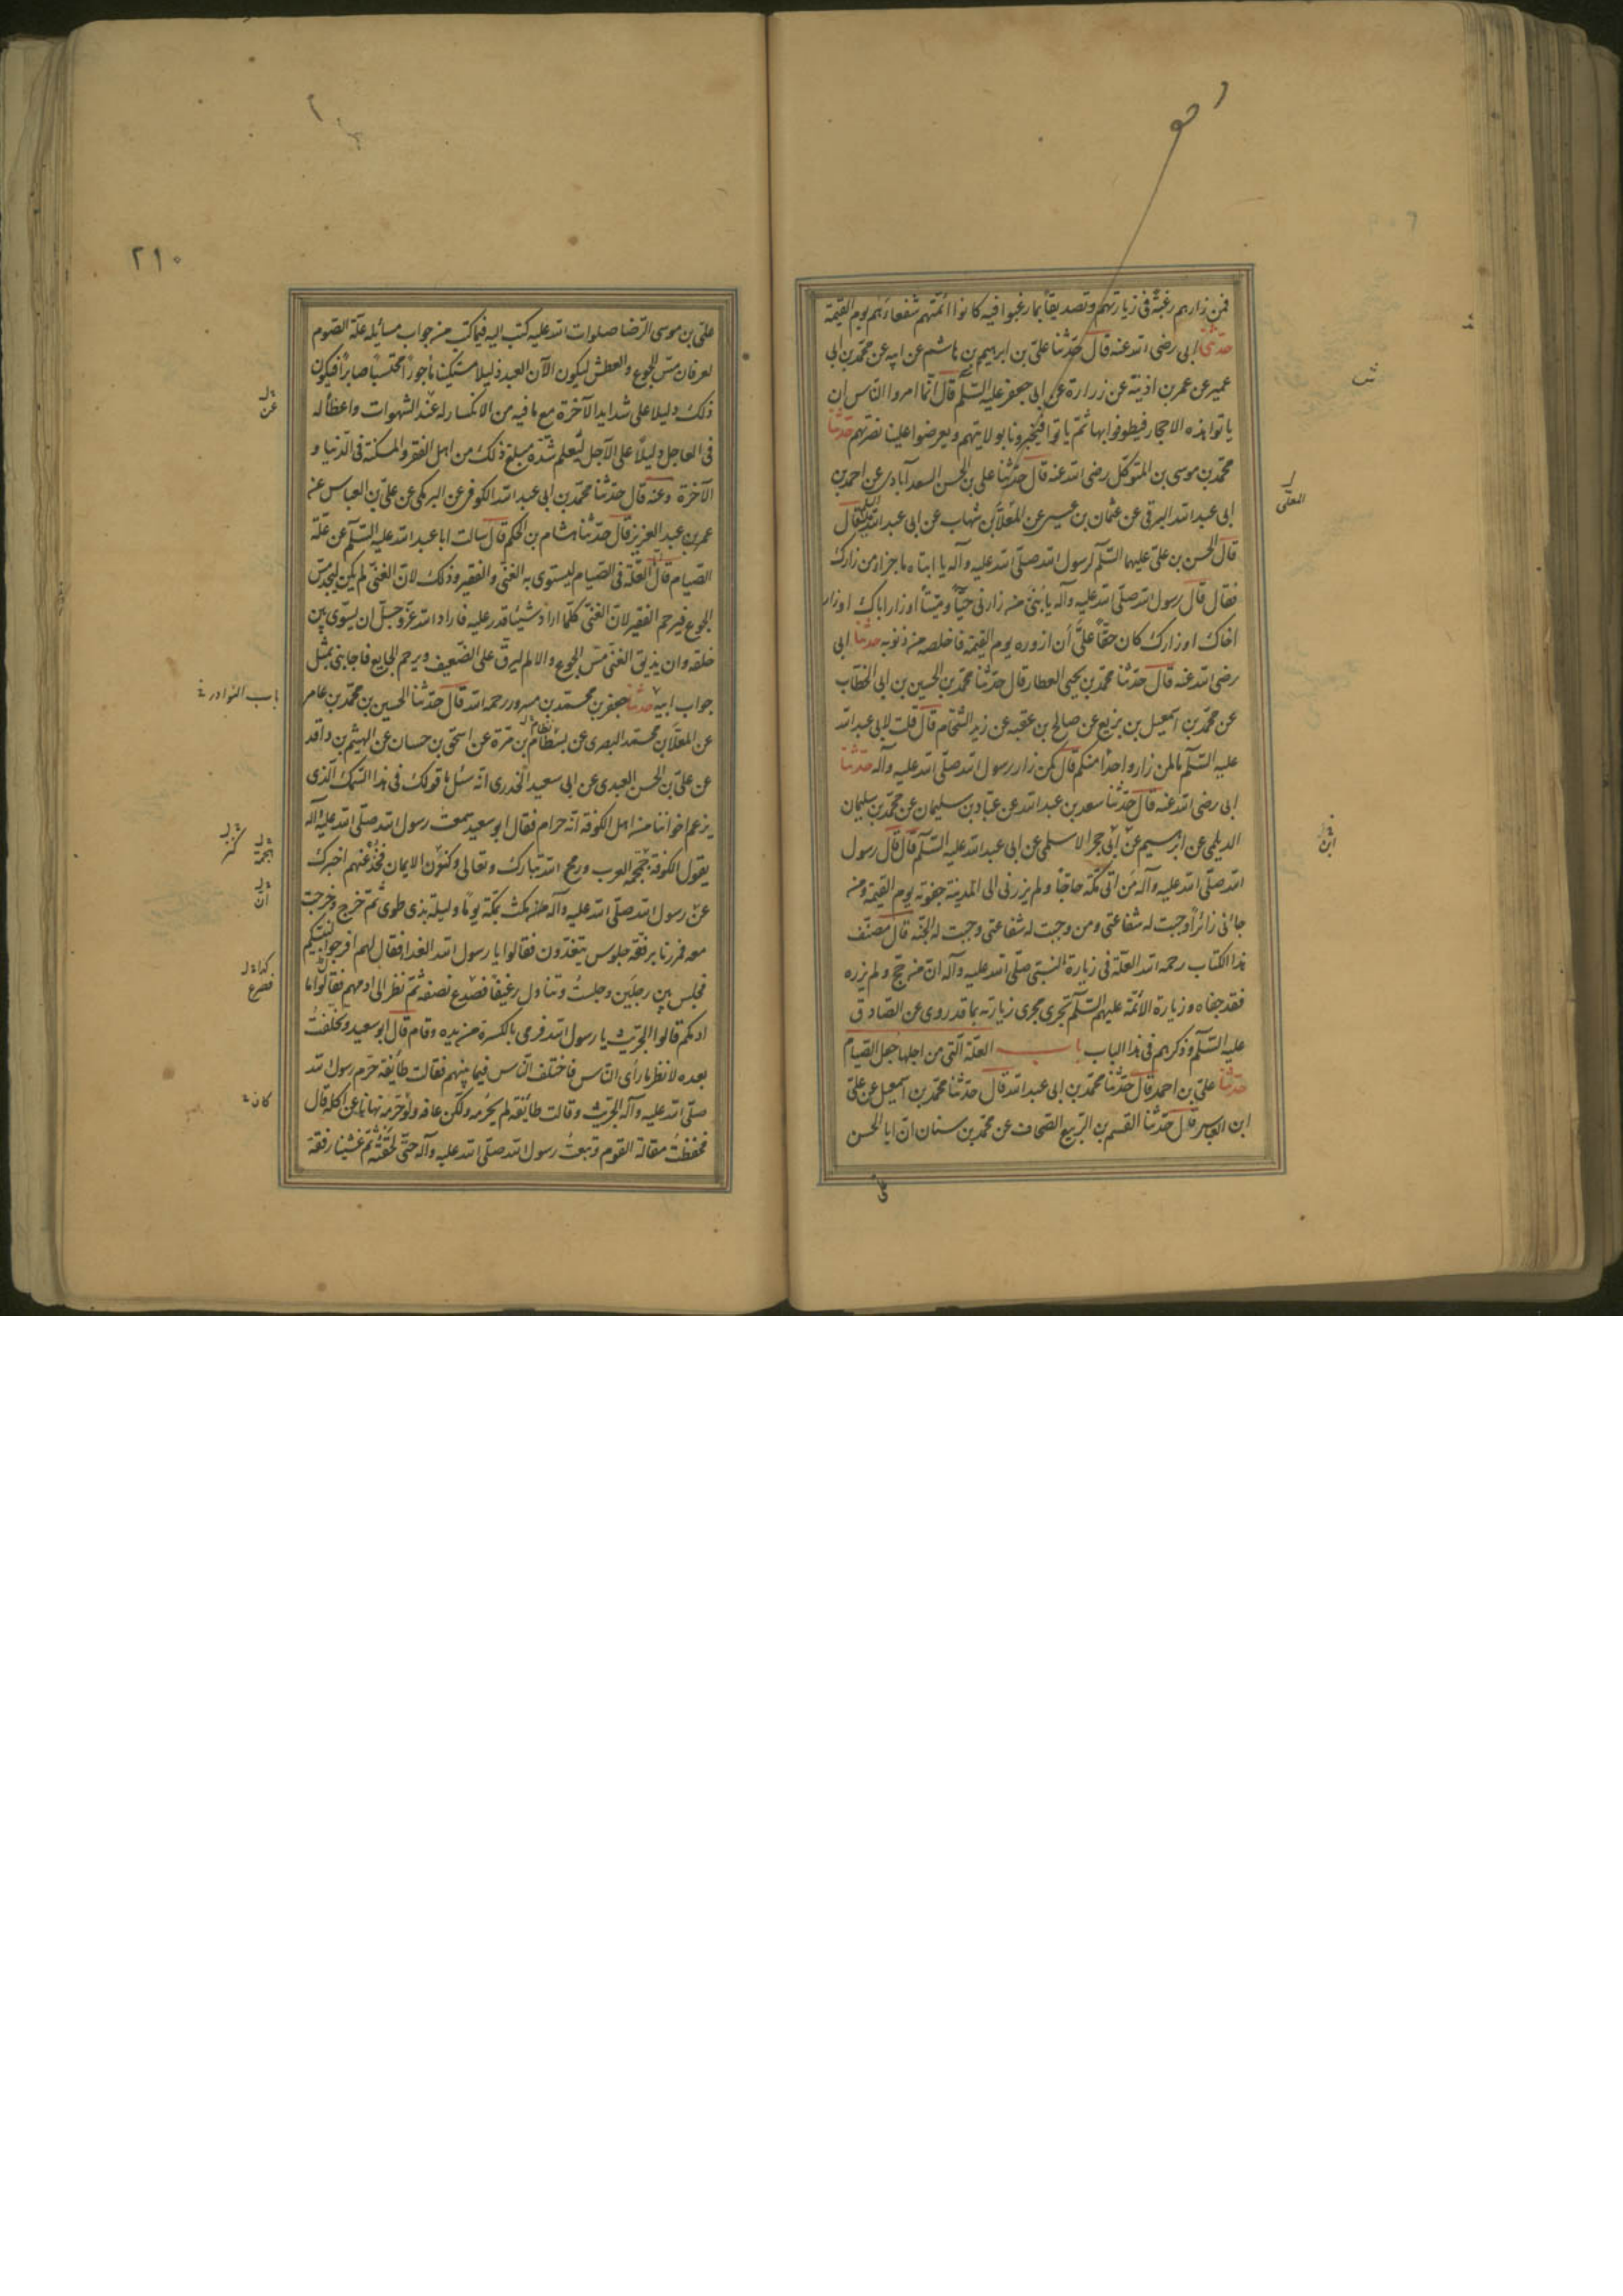 فمن زارهم رغبة فى زيارتهم وتصديقا بما رغبوا فيه كانوا ائمتهم شفعاءهم يوم القيمة
حدثنا ابى رضى الله عنه قال حدثنا على بن ابرهيم بن هاشم عن ابيه عن محمد بن ابى
عمير عن عمر بن اذينة عن زرارة عن ابى جعفر عليه السلم قال انما امروا الناس ان
ياتوا هذه الاحجار فيطوفوا بها ثم ياتوا فيخبرونا بولايتهم ويعرضوا علينا نصرتهم حدثنا
محمد بن موسى بن المتوكل رضى الله عنه قال حدثنا على بن الحسن السعدآبادى عن احمد بن
ابى عبد الله البرقى عن عثمان بن عيسى عن المعلا بن شهاب عن ابى عبد الله قال
قال الحسن بن على عليهما السلم لرسول الله صلى الله عليه وآله يا ابتاه ما جزاء من زارك
فقال قال رسول الله صلى الله عليه وآله يا بنى من زارنى حيا وميتا او زار اباك او زار
اخاك او زارك كان حقا على أن ازوره يوم القيمة فاخلصه من ذنوبه حدثنا ابى
رضى الله عنه قال حدثنا محمد بن يحيى العطار قال حدثنا محمد بن الحسين بن ابى الخطاب
عن محمد بن اسمعيل بن بزيع عن صالح بن عقبه عن زيد الشحام قال قلت لابى عبد الله
عليه السلم ما لمن زار واحدا منكم قال كمن زار رسول الله صلى الله عليه وآله حدثنا
ابى رضى الله عنه قال حدثنا سعد بن عبد الله عن عباد بن سليمان عن محمد بن سليمان
الديلمى عن ابرهيم عن ابى حجر الاسلمى عن ابى عبد الله عليه السلم قال قال رسول
الله صلى الله عليه وآله من اتى مكة حاجا ولم يزرنى الى المدينة جفوته يوم القيمة ومن
جائنى زائرا وجبت له شفاعتى ومن وجبت له شفاعتى وجبت له الجنة قال مصنف
هذا الكتاب رحمه الله العلة فى زيارة النبى صلى الله عليه وآله ان من حج ولم يزره
فقد جفاه وزيارة الائمة عليهم السلم تجرى مجرى زيارته بما قد روى عن الصادق
عليه السلم وذكرهم فى هذا الباب باب العلة التى من اجلها جعل الصيام
حدثنا على بن احمد قال حدثنا محمد بن ابى عبد الله قال حدثنا محمد بن اسمعيل عن على
ابن العباس قال حدثنا القسم بن الربيع الصحاف عن محمد بن سنان ان ابا الحسن
المعلى
ابن
على
٢١٠
على بن موسى الرضا صلوات الله عليه كتب اليه فيما كتب من جواب مسائله علة الصوم
لعرفان مس الجوع والعطش ليكون الآن العبد ذليلا مستكينا مأجورا محتسبا صابرا فيكون
ذلك دليلا على شدايد الآخرة مع ما فيه من الانكسار له عند الشهوات واعظا له
فى العاجل دليلا على الآجل ليعلم شدة مبلغ ذلك من اهل الفقر والمسكنة فى الدنيا و
الآخرة وعنه قال حدثنا محمد بن ابى عبد الله الكوفى عن البرمكى عن على بن العباس عنه
عمر بن عبد العزيز قال حدثنا هشام بن الحكم قال سالت ابا عبد الله عليه السلم عن علة
الصيام قال العلة فى الصيام ليستوى به الغنى والفقير وذلك لان الغنى لم يكن ليجد مس
الجوع فيرحم الفقير لان الغنى كلما اراد شيئا قدر عليه فاراد الله عز وجل ان يسوى بين
خلقه وان يذيق الغنى مس الجوع والالم ليرق على الضعيف ويرحم الجايع فاجابنى بمثل
جواب ابيه حدثنا جعفر بن محمد بن مسرور رحمه الله قال حدثنا الحسين بن محمد بن عامر
عن المعلا بن محمد البصرى عن بسطام بن مرة عن اسحق بن حسان عن الهيثم بن واقد
عن على بن الحسن العبدى عن ابى سعيد الخدرى انه سئل ما قولك فى هذا السمك الذى
يزعم اخواننا من اهل الكوفة انه حرام فقال ابو سعيد سمعت رسول الله صلى الله عليه وآله
يقول الكوفة جمجمة العرب ورمح الله تبارك وتعالى وكنوز الايمان فخذ عنهم اخبرك
عن رسول الله صلى الله عليه وآله مكث بمكة يوما وليلة بذى طوى ثم خرج وخرجت
معه فمررنا برفقة جلوس يتغدون فقالوا يا رسول الله الغدا فقال لهم افرجوا لنبيكم
فجلس بين رجلين وجلست وتناول رغيفا فصدع نصفه ثم نظر الى ادمهم فقال ما
ادمكم قالوا الجريث يا رسول الله فرمى بالكسرة من يده وقام قال ابو سعيد وتخلفت
بعده لانظر ما رأى الناس فاختلف الناس فيما بينهم فقالت طائفة حرم رسول الله
صلى الله عليه وآله الجريث وقالت طائفة لم يحرمه ولكن عافه ولو حرمه نهانا عن اكله قال
فحفظت مقالة القوم وتبعت رسول الله صلى الله عليه وآله حتى لحقته ثم غشينا رفقة
عن
باب النوادر
ان
كان